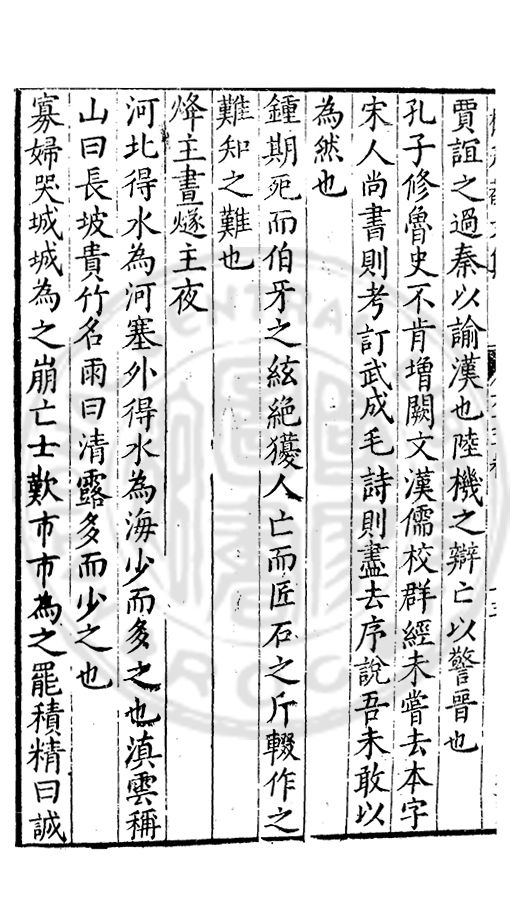 賈誼之過秦以諭漢也陸機之辯亡以警晉也
孔子修魯史不肯增闕文漢儒校群經未嘗去本字
宋人尚書則考訂武成毛詩則盡去序說吾未敢以
為然也
鍾期死而伯牙之絃絕獶人亡而匠石之斤輟作之
難知之難也
烽主晝燧主夜
河北得水為河塞外得水為海少而多之也滇雲稱
山曰長坡貴竹名雨曰清露多而少之也
寡婦哭城城為之崩亡士歎市市為之罷積精曰誠